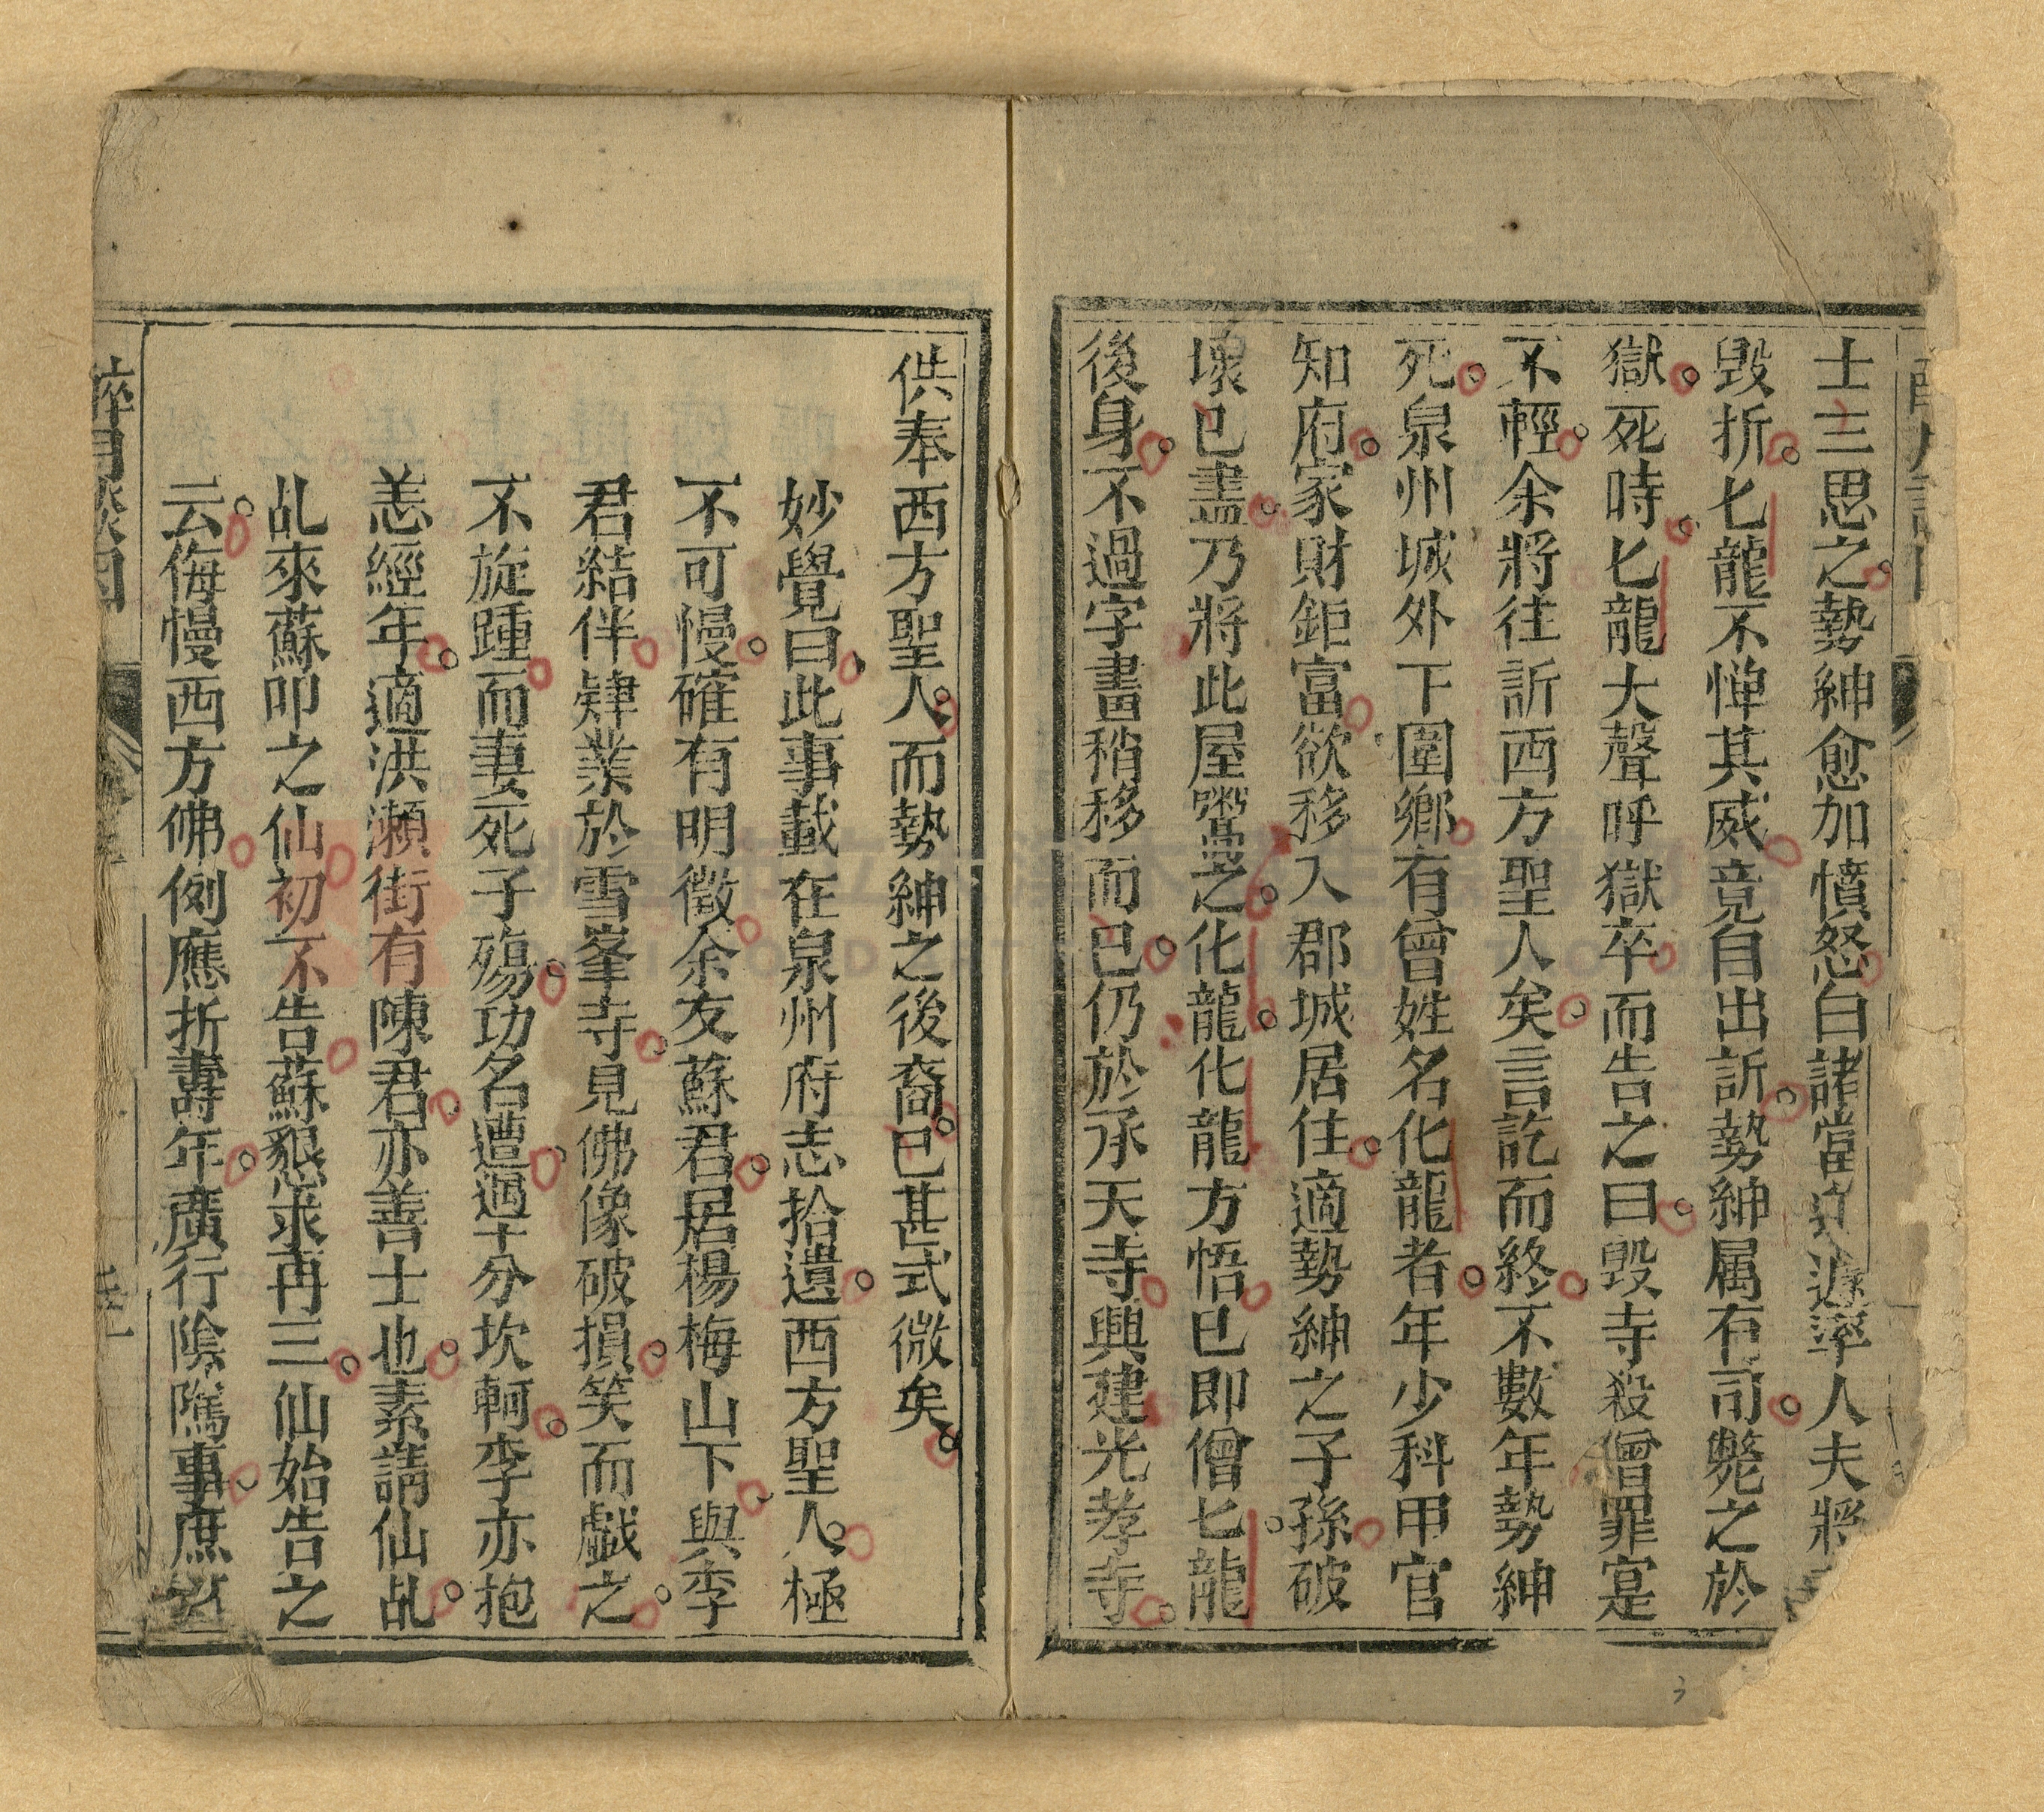 士三思之勢紳愈加憤怒白諸當遽率人夫將
毀折匕龍不惮其威竟自出訴勢紳属有司斃之於
獄死時匕龍大聲呼獄卒而告之曰毀寺殺僧罪寔
不輕余將往訴西方聖人矣言訖而終不數年勢紳
死泉州城外下圍鄉有曾姓名化龍者年少科甲官
知府家財鉅富欲移入郡城居住適勢紳之子孫破
壞已盡乃將此屋鬻之化龍化龍方悟已即僧匕龍
後身不過字畫稍移而已仍於承天寺興建光孝寺
供奉西方聖人而勢紳之後裔已甚式微矣
妙覺曰此事載在泉州府志拾遺西方聖人極
不可慢確有明徵余友蘇君居楊梅山下與李
君結伴肄業於雪峯寺見佛像破損笑而戱之
不旋踵而妻死子殤功名遭遇十分坎軻李亦抱
恙經年適洪瀨街有陳君亦善士也素請仙乩
乩來蘇叩之仙初不告蘇懇求再三仙始告之
云侮慢西方佛例應折壽年廣行陰隲事庶